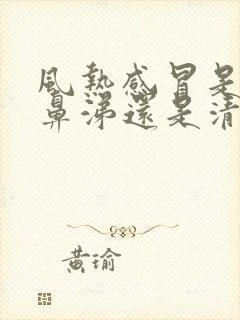 風熱感冒是
鼻涕還是清
黃瑜